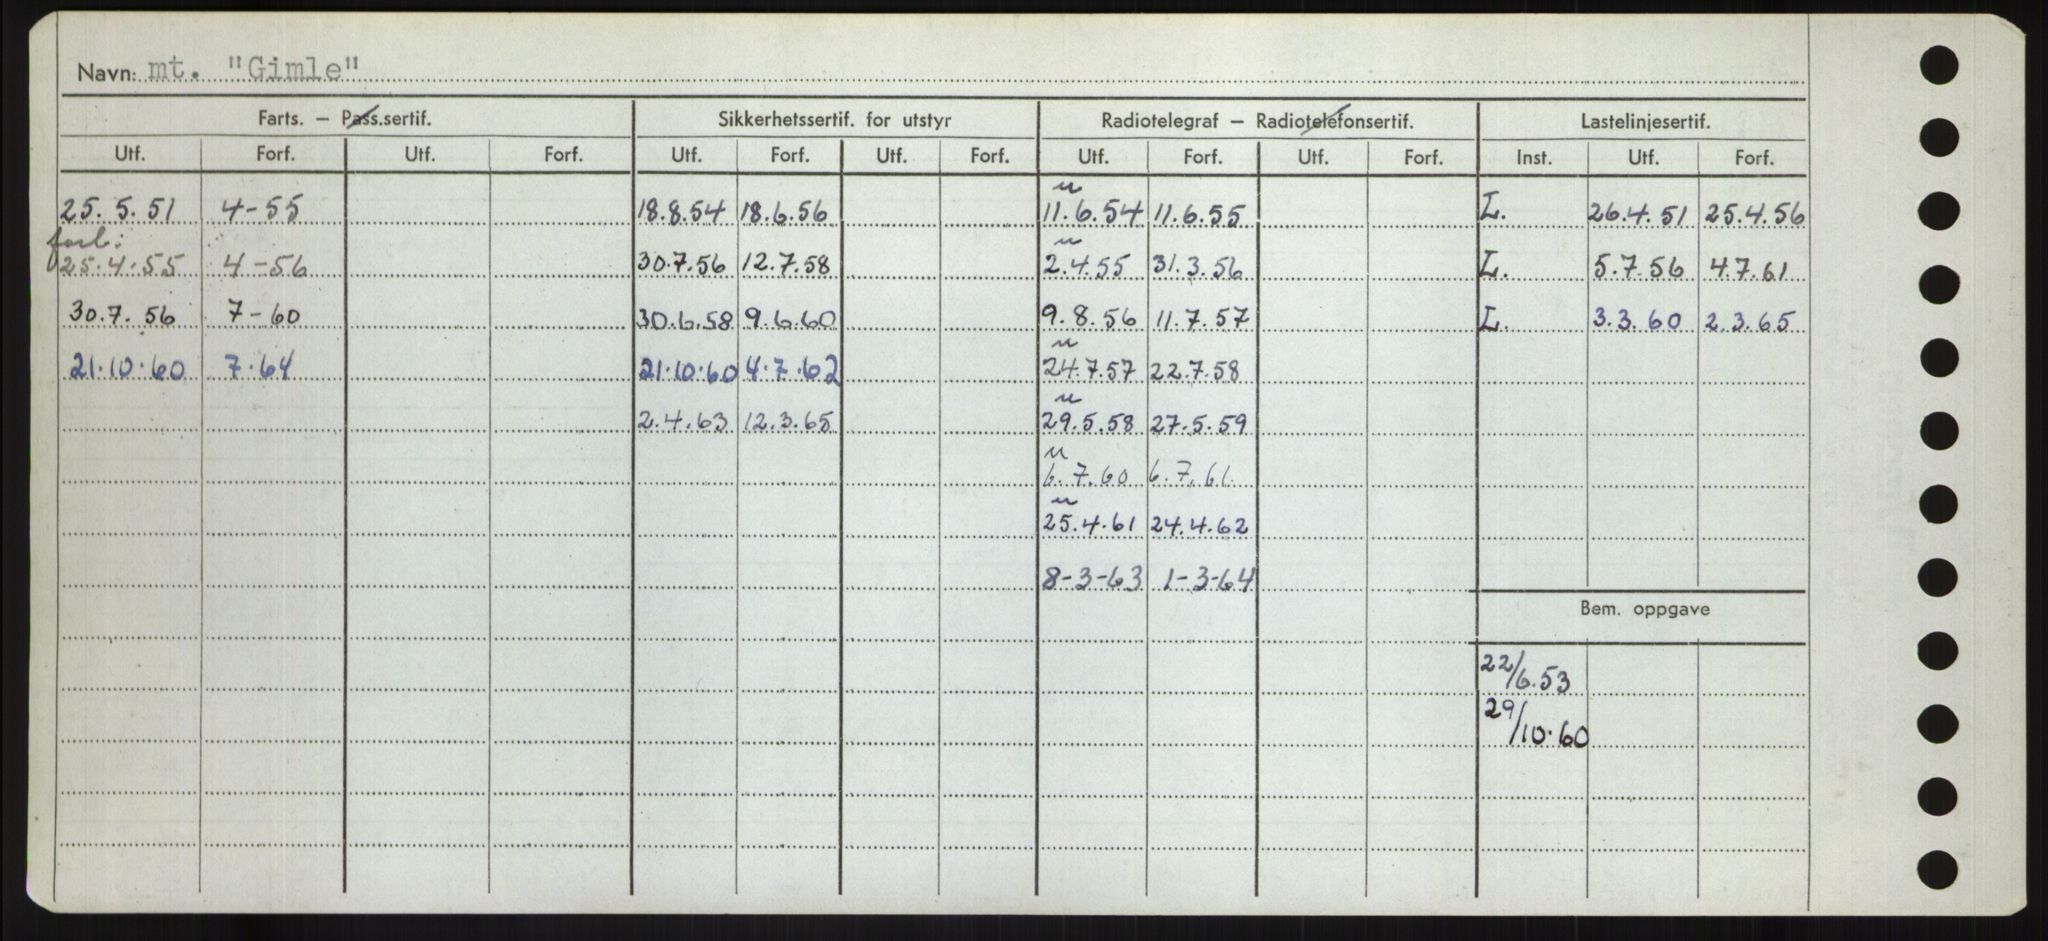 Navn: mt. "Gimle"
Farts. – Pass.sertif. Sikkerhetssertif. for utstyr Radiotelegraf – Radiotelefonsertif. Lastelinjesertif.
Utf. Forf. Utf. Forf. Utf. Forf. Utf. Forf. Utf. Forf. Utf. Forf. Inst. Utf. Forf.
25.5.51 4-55 18.8.54 18.6.56 11.6.54 11.6.55 L. 26.4.51 25.4.56
forl:
25.4.55 4-56 30.7.56 12.7.58 2.4.55 31.3.56 L. 5.7.56 4.7.61
30.7.56 7-60 30.6.58 9.6.60 9.8.56 11.7.57 L. 3.3.60 2.3.65
21.10.60 7.64 21.10.60 4.7.62 24.7.57 22.7.58
2.4.63 12.3.65 29.5.58 27.5.59
6.7.60 6.7.61.
25.4.61 24.4.62
8-3-63 1-3-64
Bem. oppgave
22/6.53
29/10.60